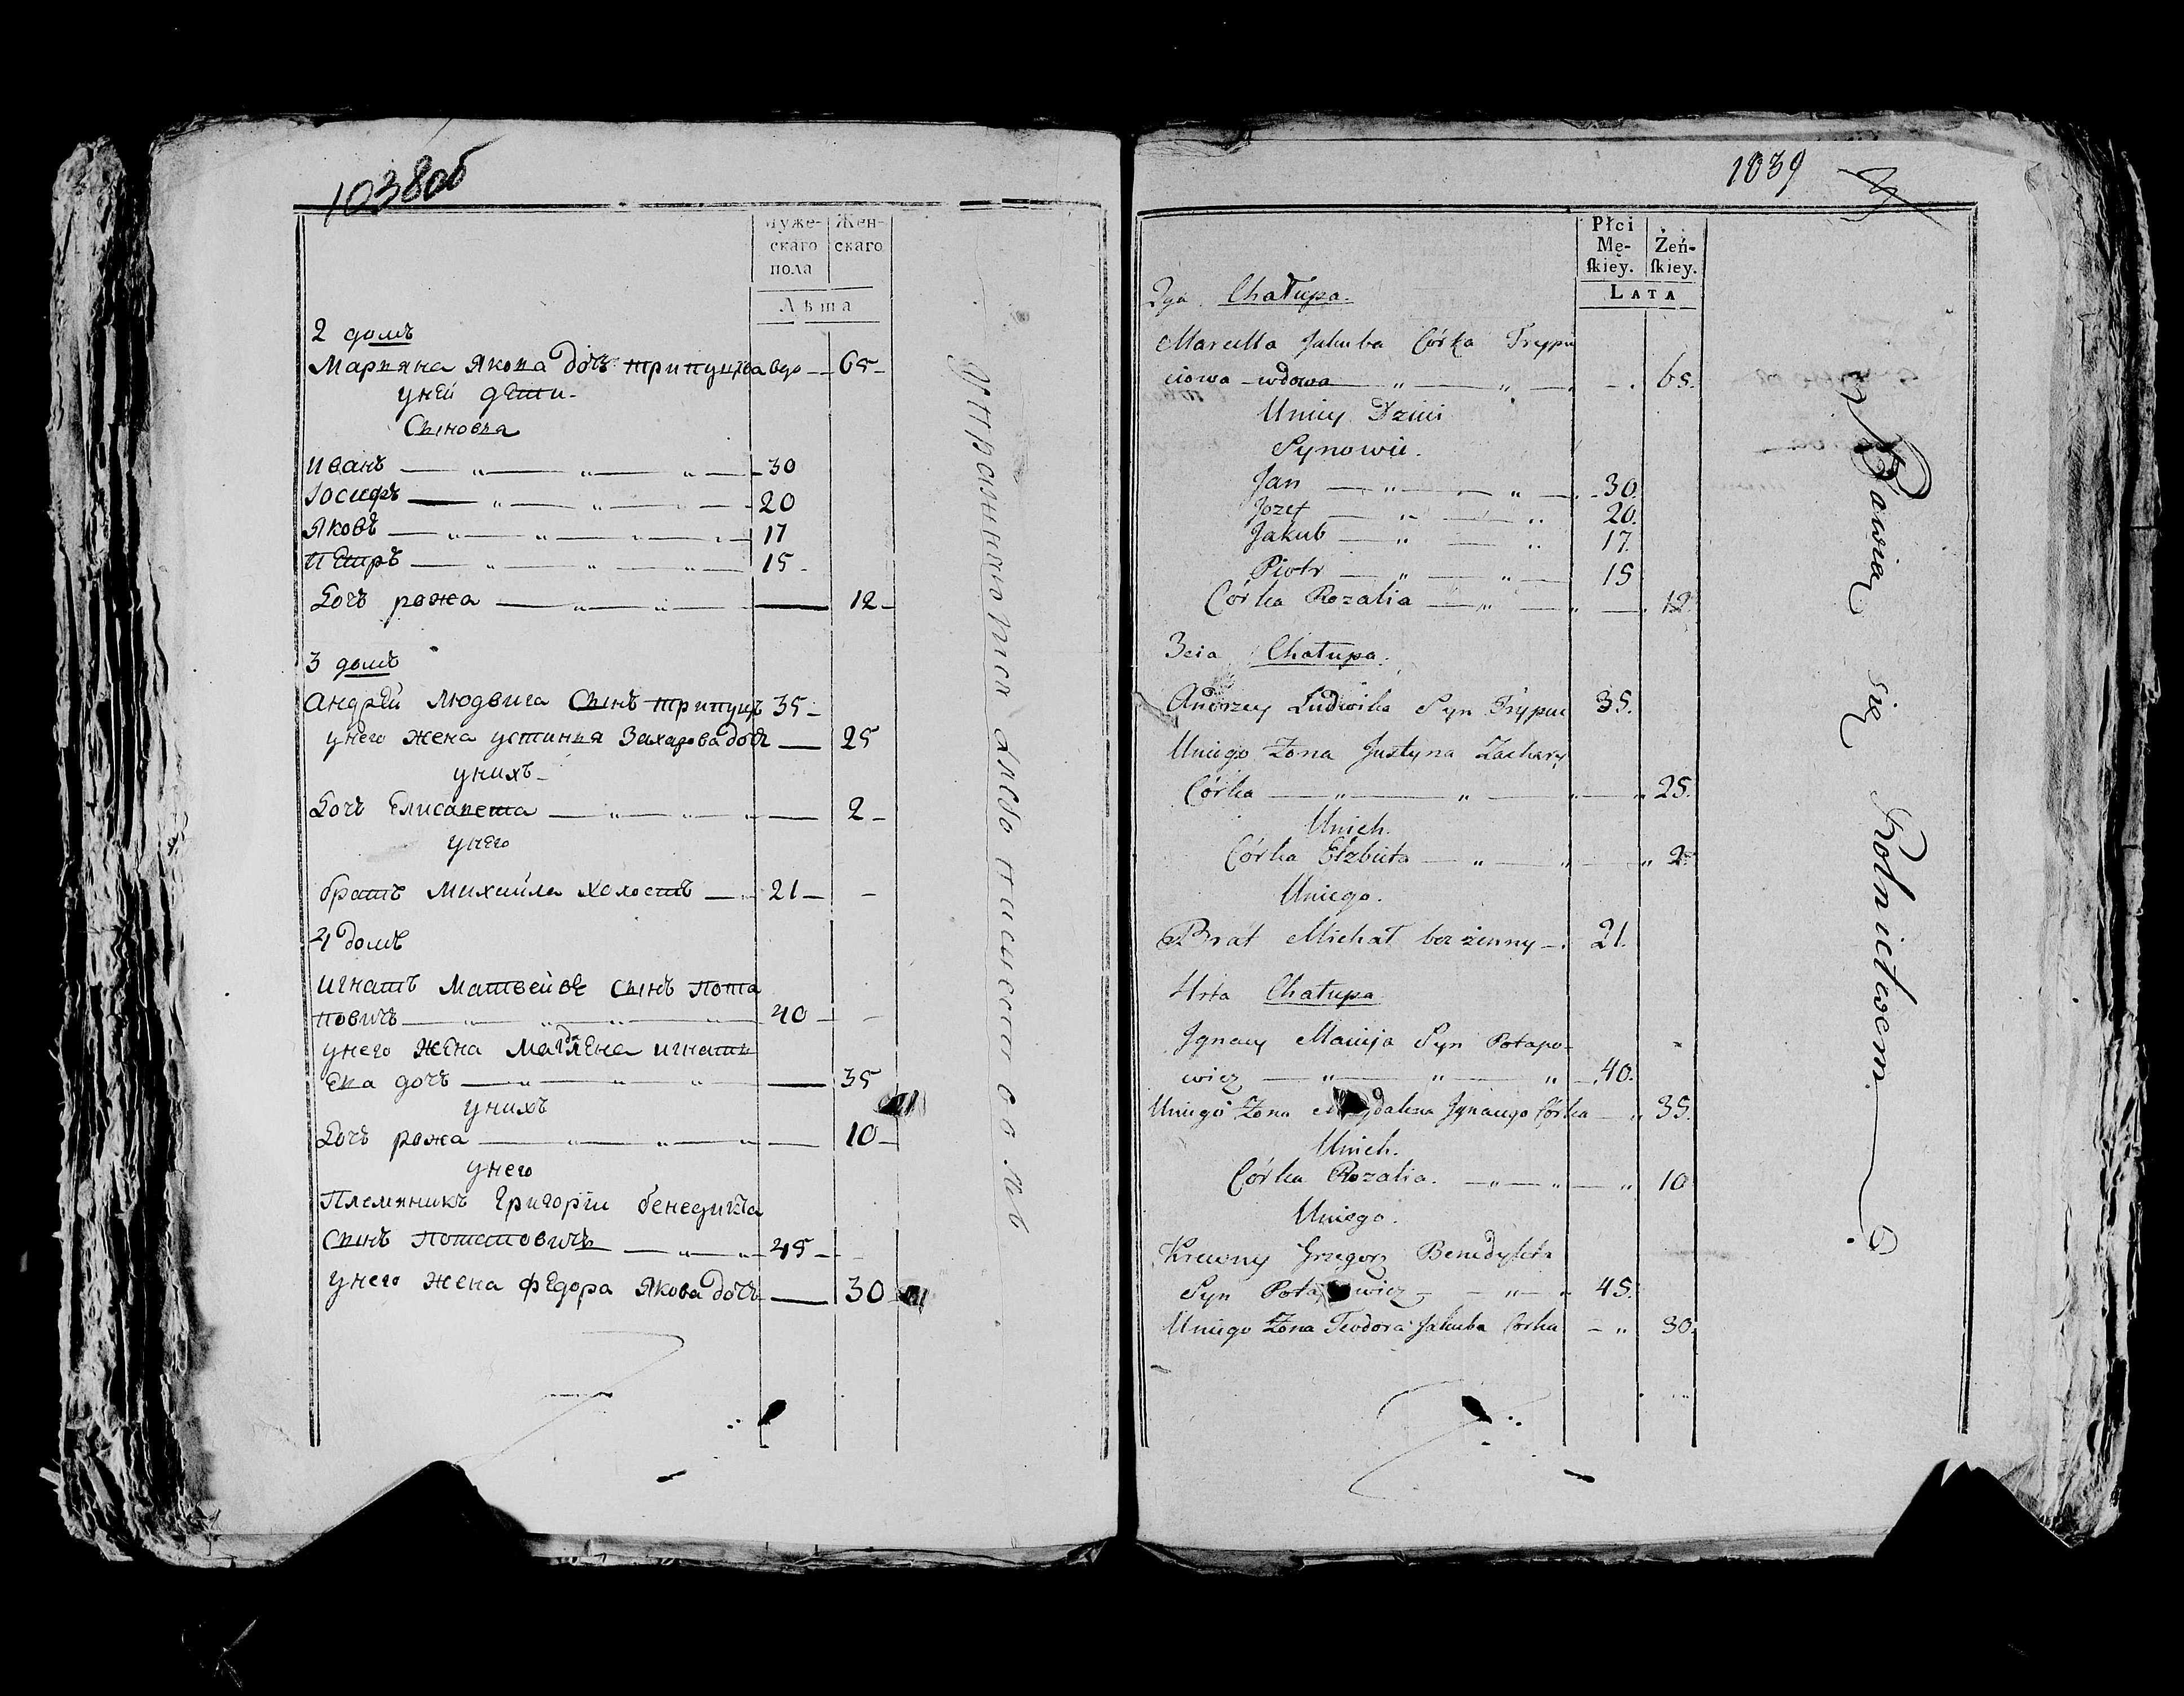 1038об
Муже-
скаго
пола
Жен-
скаго
Лѣта
2 домъ
Марцяна Якова дочъ трипуцова вдо 65
уней дети
Сыновья
Иванъ 30
Іосифъ 20
Яковъ 17
Петръ 15
Дочъ рожа 12
3 домъ
Андрей Людвига Сынъ трипуцъ 35
унего жена устинья Захарова дочъ 25
унихъ
Дочъ Елисавета 2
унего
братъ Михайла холостъ 21
4 домъ
игнатъ Матвейве сынъ Пота
повичъ 40
унего жена Магдалена игнать
ева дочъ 35
унихъ
Дочъ рожа 10
унего
Племяникъ Григорій бенедикта
Сынъ Потаповичъ 45
унего жена федора Якова дочъ 30
1039
Płci
Mę-
skiey.
Żeń-
skiey.
LATA
2ga Chałupa.
Marcella Jakuba Córka Trypu
ciowa wdowa 65.
Uniey Dzieci
Synowie.
Jan 30.
Jozef 20.
Jakub 17.
Piotr 15
Córka Rozalia 12
3cia Chałupa.
Andrzey Ludwika Syn Trypuc 35.
Uniego Żona Justyna Zachary
Córka 25.
Unich.
Córka Elzbieta 2
Uniego.
Brat Michał bez żenny 21.
4rta Chałupa
Jgnacy Macieja Syn Potapo-
wicz 40.
Uniego Żona Magdalena Jgnacego Córka 35.
Unich.
Córka Rozalia. 10
Uniego.
Krewny Grzegorz Benedykta
Syn Potapowicz 45.
Uniego Żona Teodora Jakuba Córka 30.
Bawią się Rolnictwem